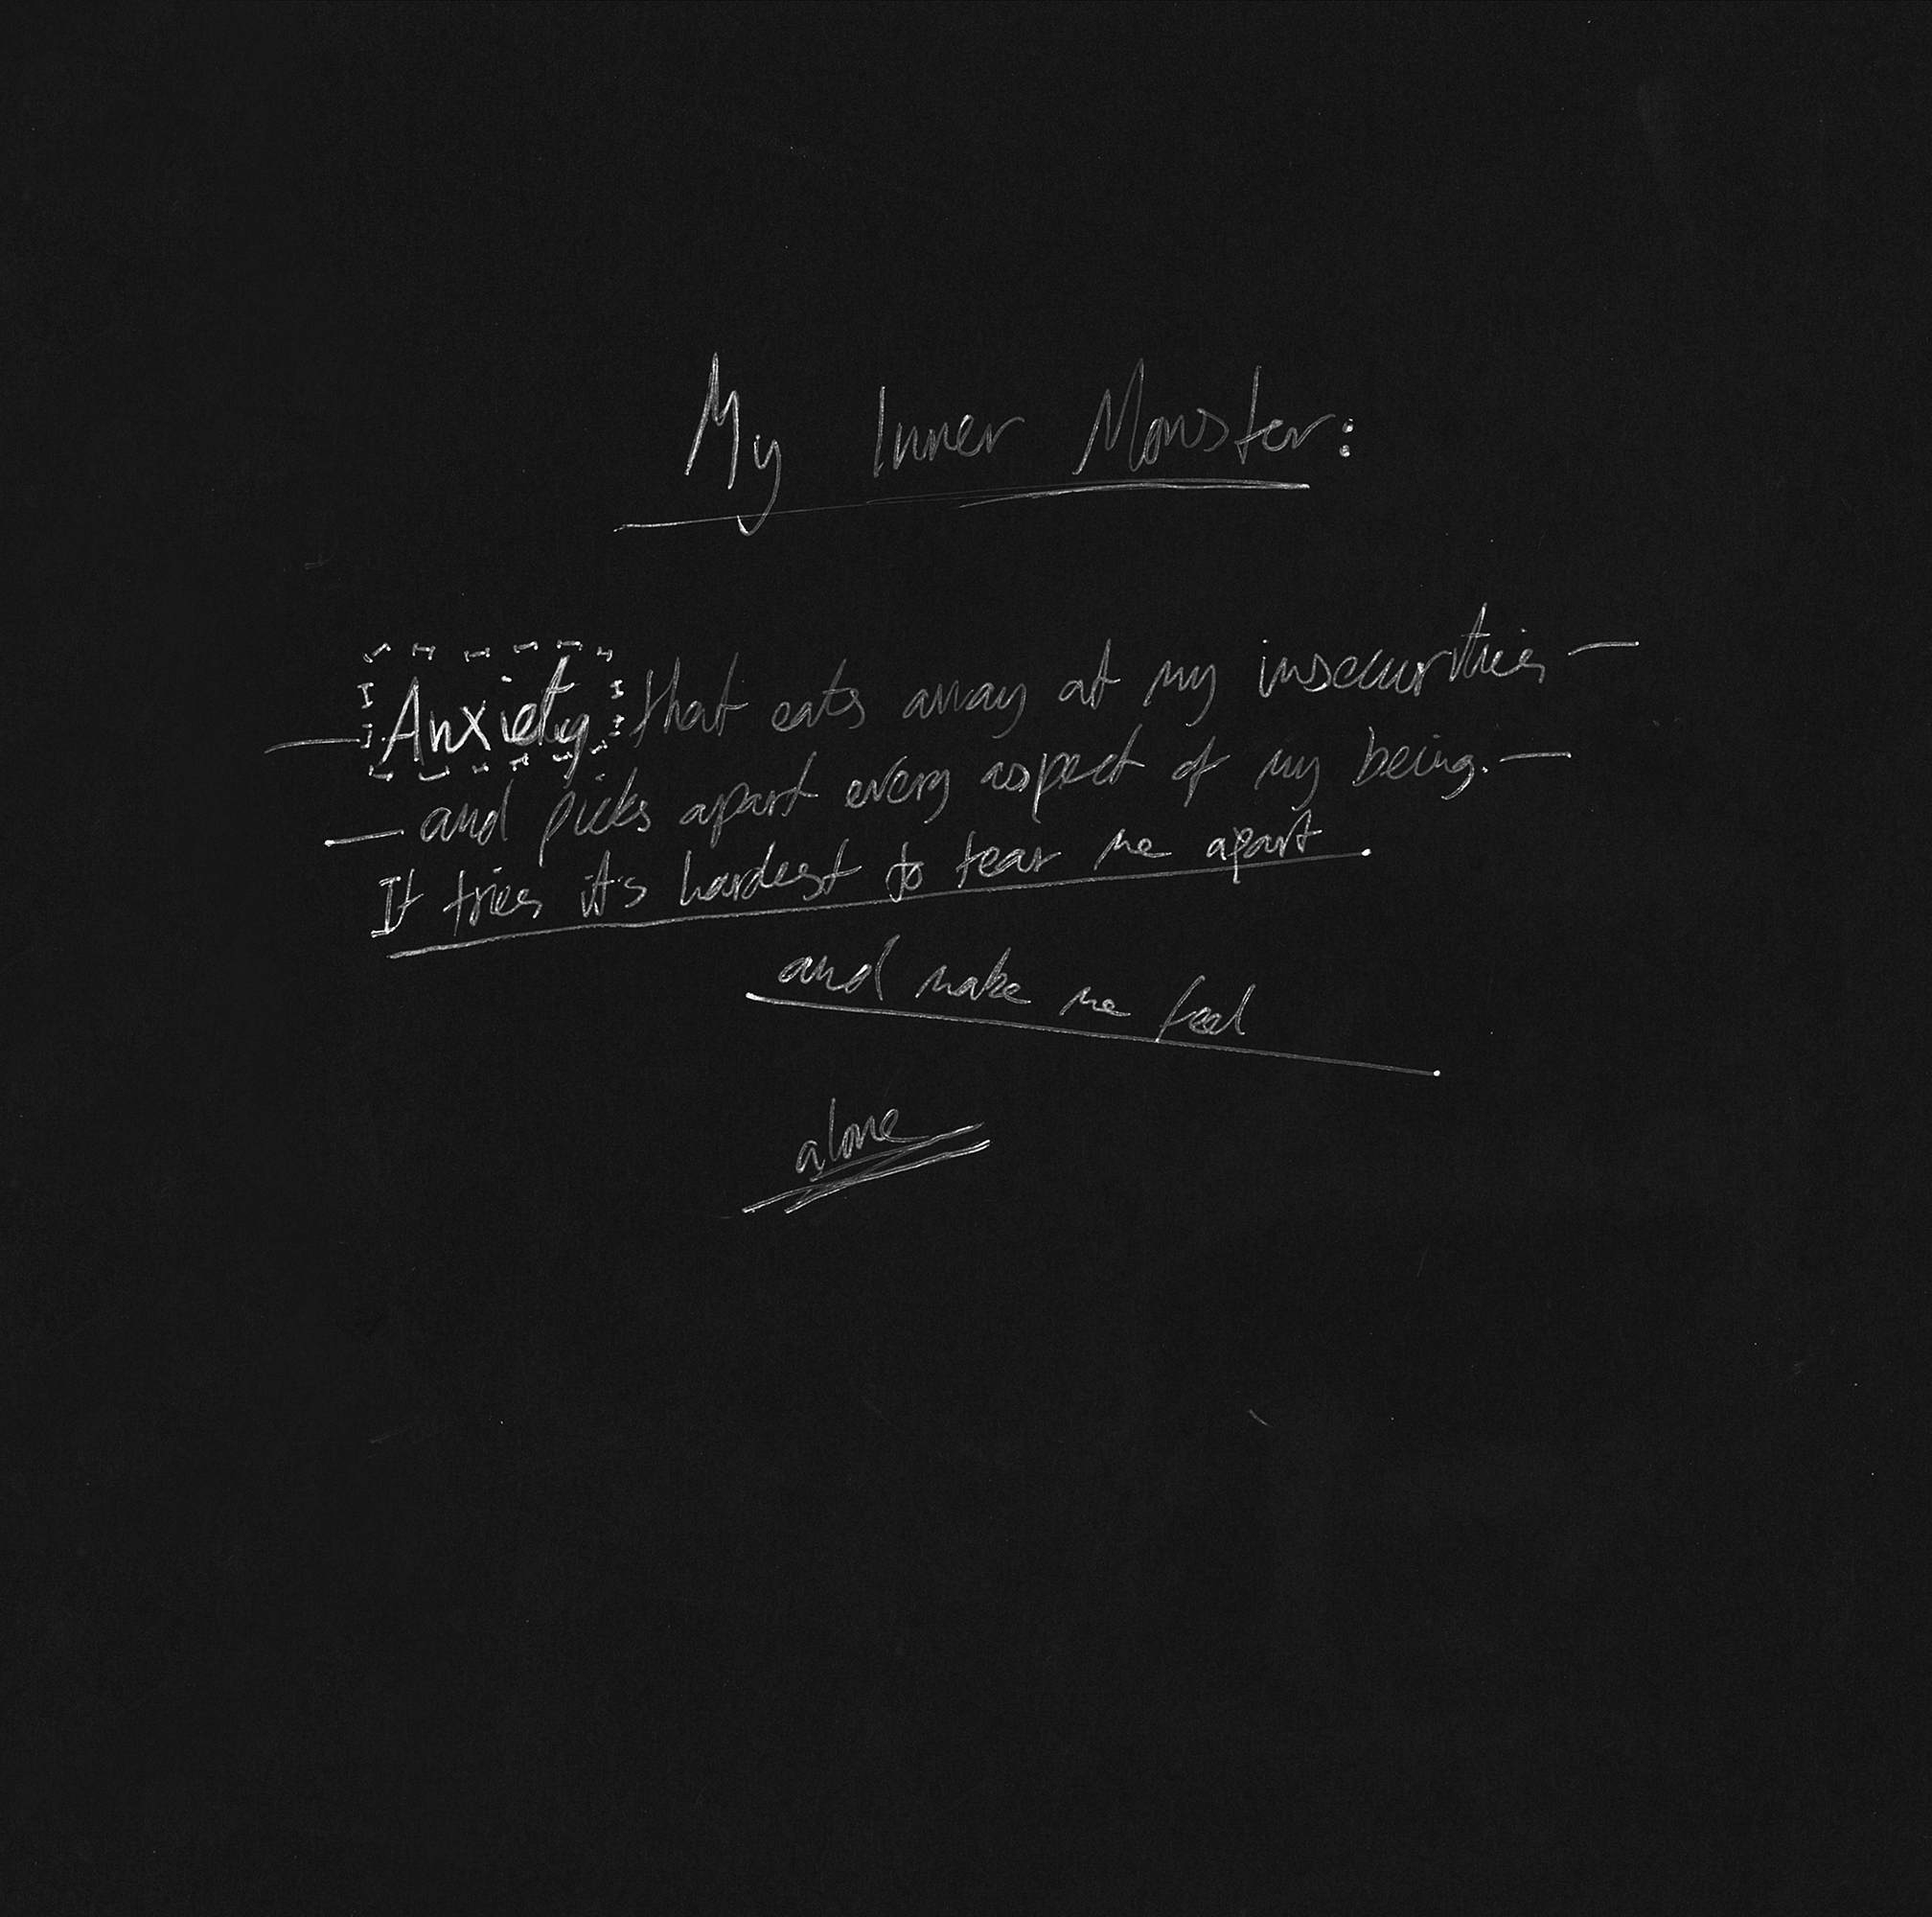 My Inner Monster:
— Anxiety that eats away at my insecurities —
— and picks apart every aspect of my being. —
It tries it's hardest to tear me apart
and make me feel
alone